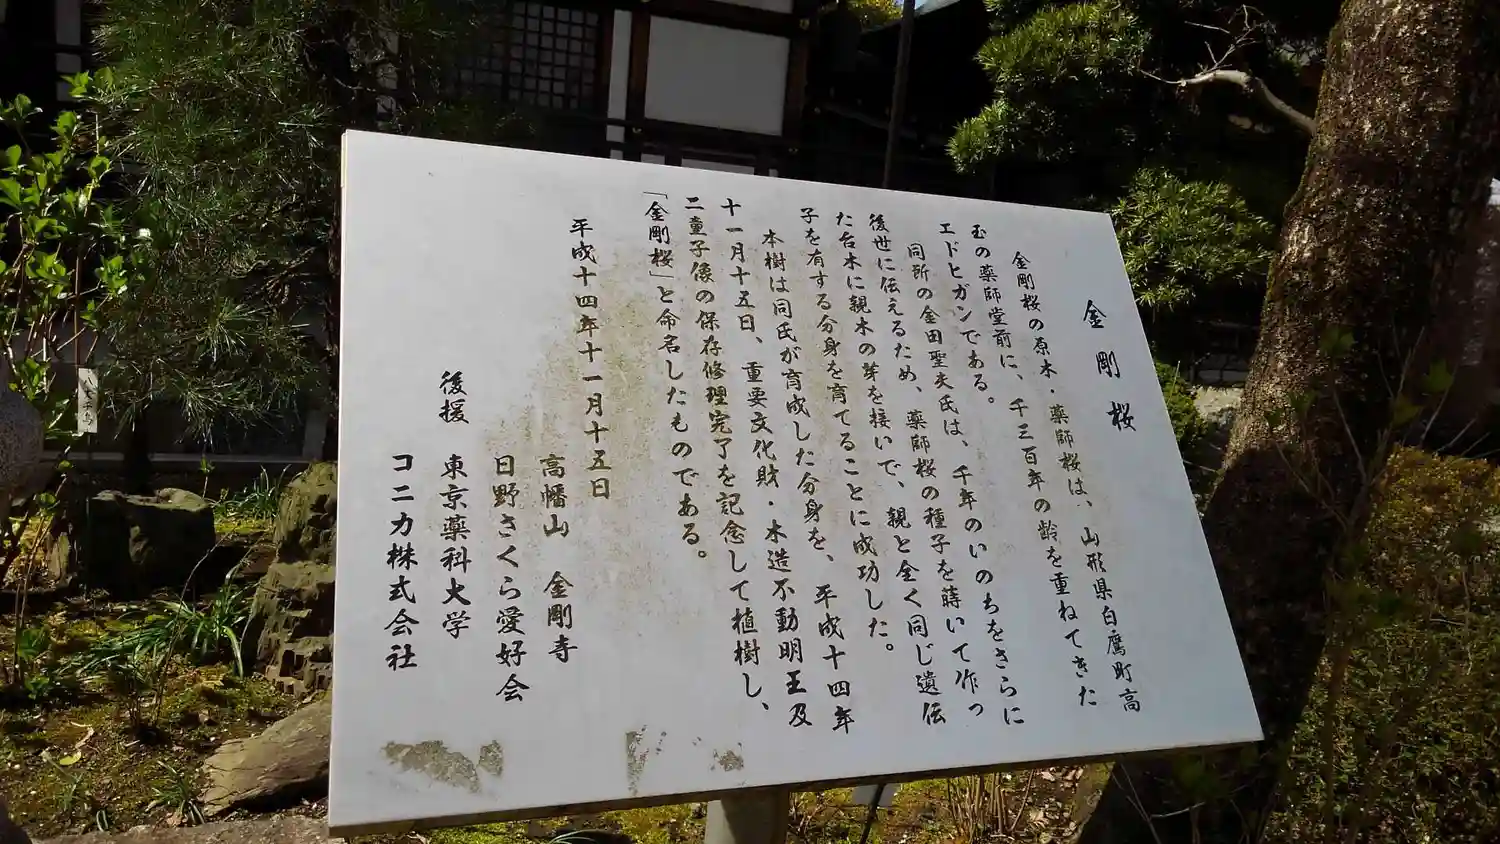 金剛桜
金剛桜の原木・薬師桜は、山形県白鷹町高
玉の薬師堂前に、千三百年の齢を重ねてきた
エドヒガンである。
同所の金田聖夫氏は、千年のいのちをさらに
後世に伝えるため、薬師桜の種子を蒔いて作っ
た台木に親木の芽を接いで、親と全く同じ遺伝
子を有する分身を育てることに成功した。
本樹は同氏が育成した分身を、平成十四年
十一月十五日、重要文化財・木造不動明王及
二童子像の保存修理完了を記念して植樹し、
「金剛桜」と命名したものである。
平成十四年十一月十五日
高幡山 金剛寺
日野さくら愛好会
後援 東京薬科大学
コニカ株式会社